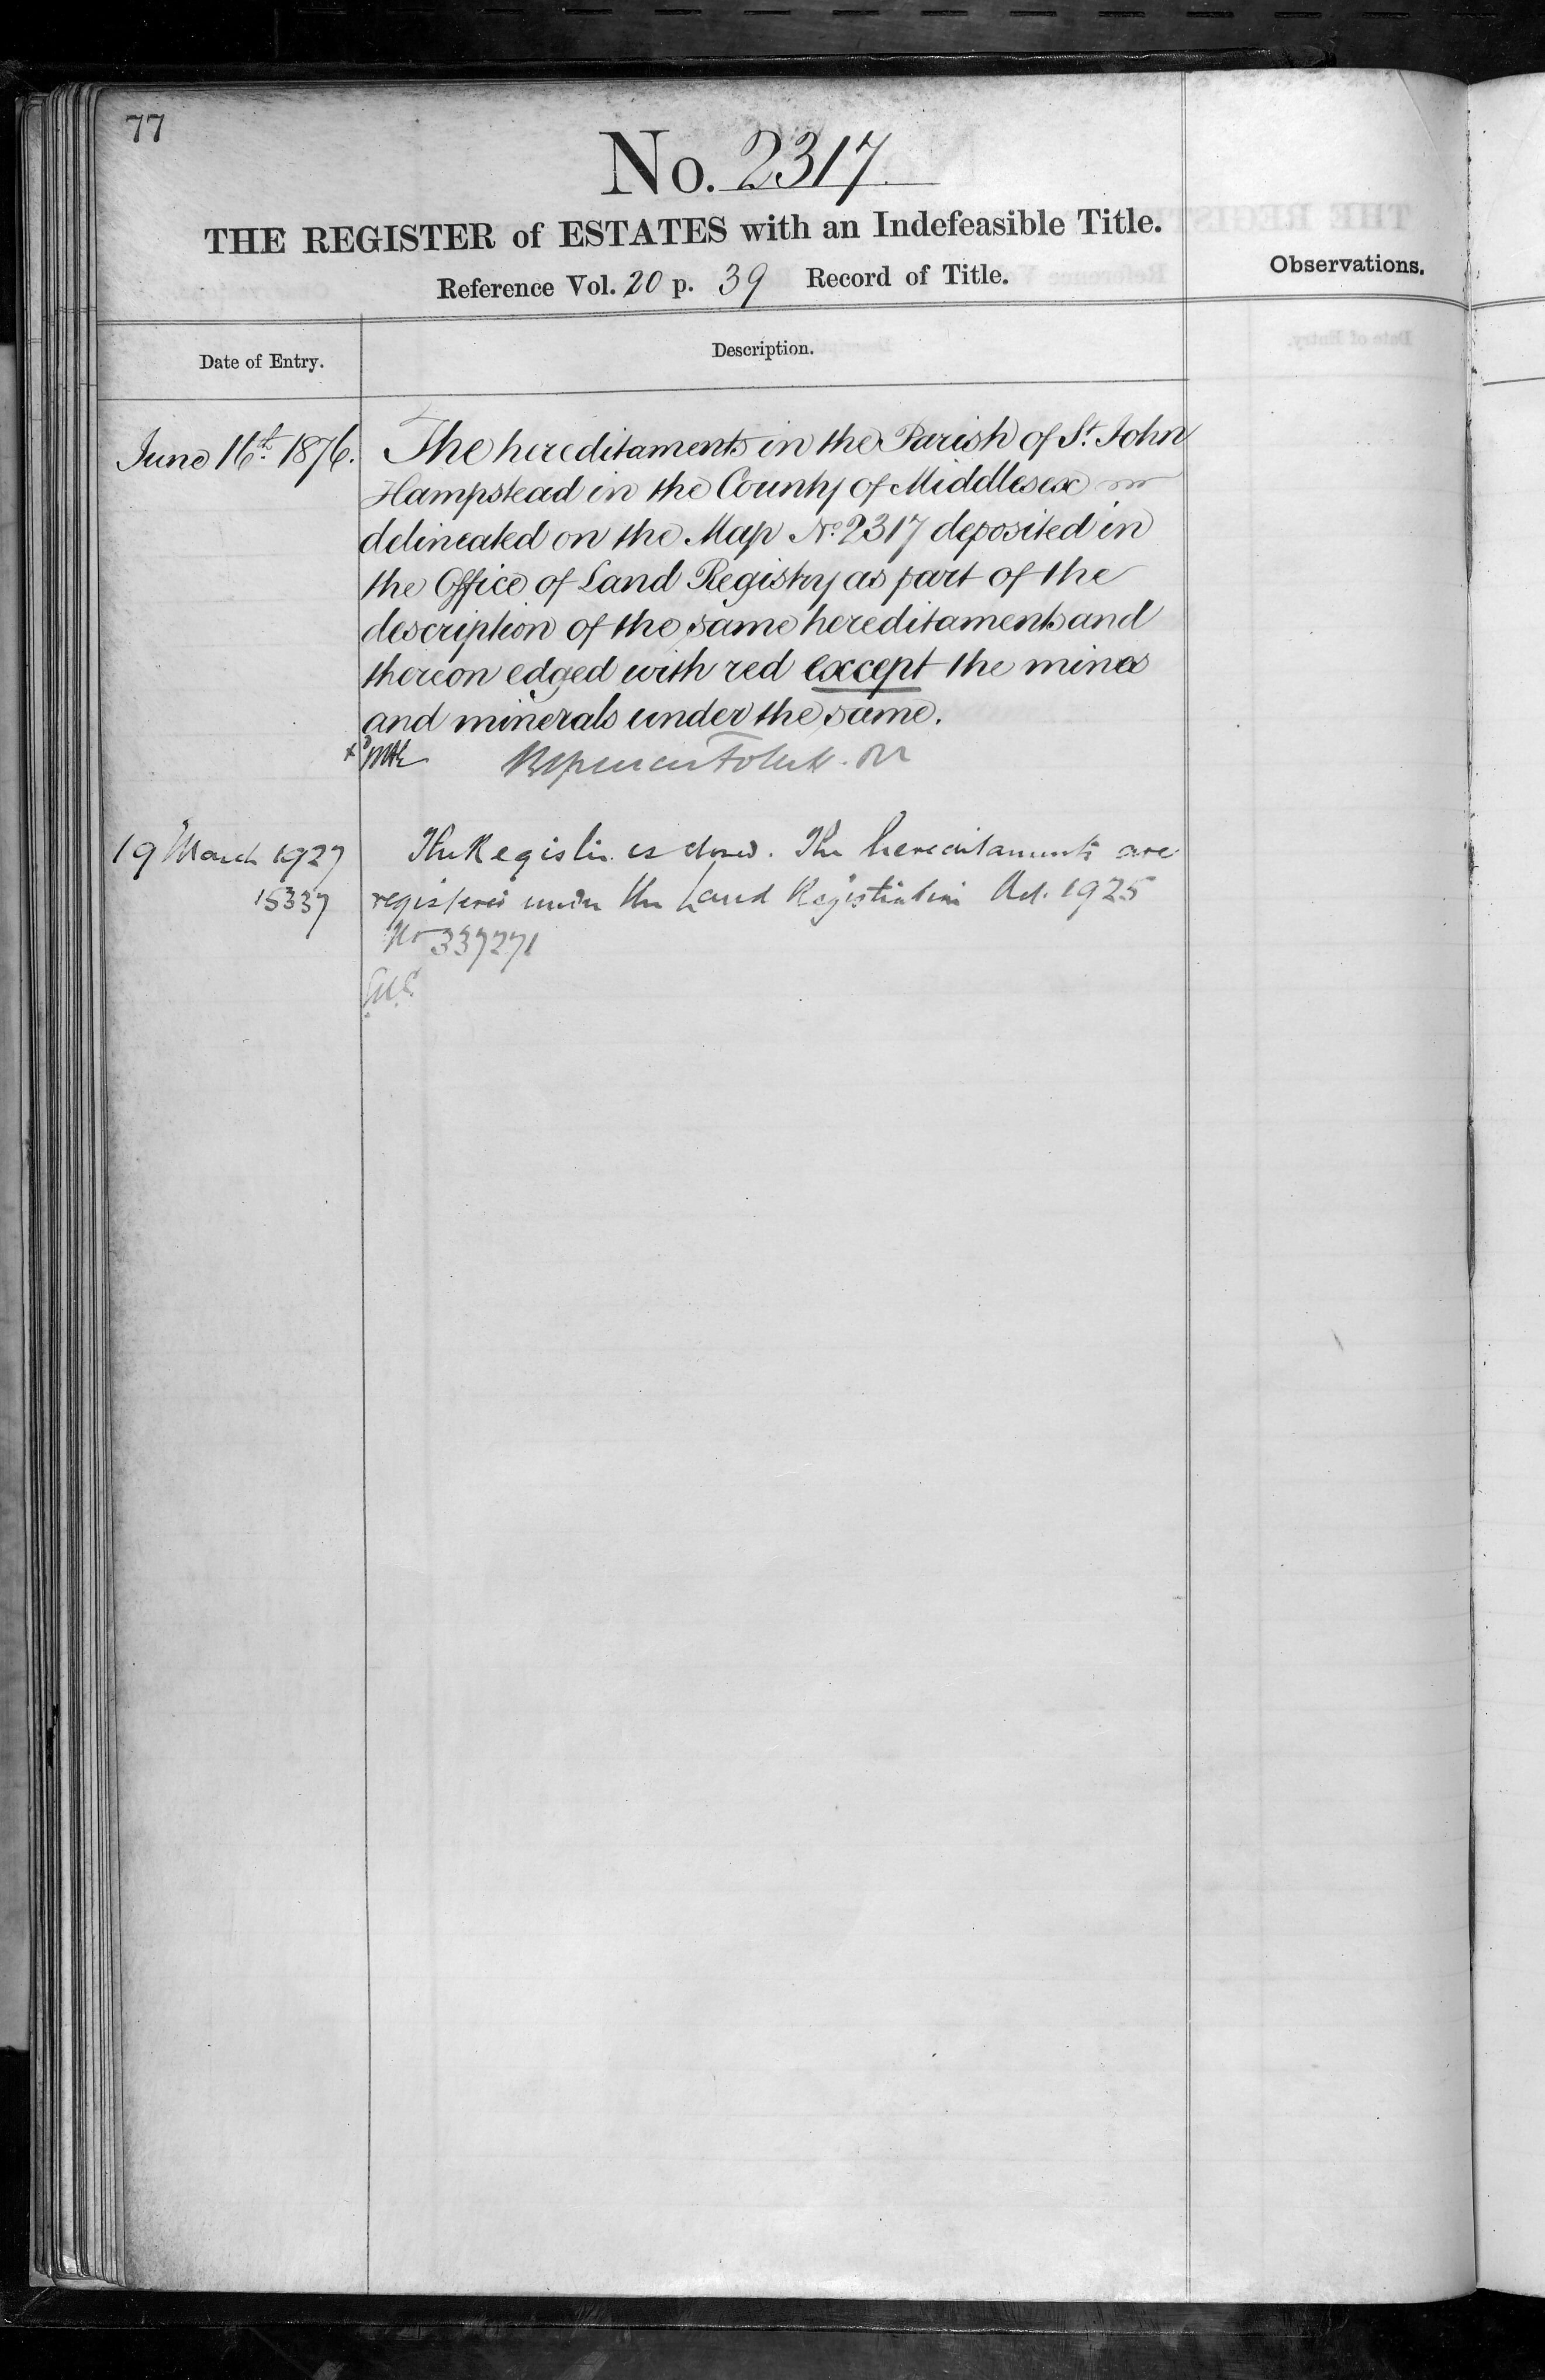 77
No. 2317
THE REGISTER of ESTATES with an Indefeasible Title.
Reference Vol. 20 p. 39 Record of Title.
Observations.
Date of Entry.
Description.
June 16th 1876.
The hereditaments in the Parish of St. John
Hampstead in the County of Middlesex
delineated on the Map No. 2317 deposited in
the Office of Land Registry as part of the
description of the same hereditaments and
thereon edged with red except the mines
and minerals under the same.
19 March 1927
15337
The Register is closed. The hereditaments are
registered under the Land Registration Act. 1925
No 337271